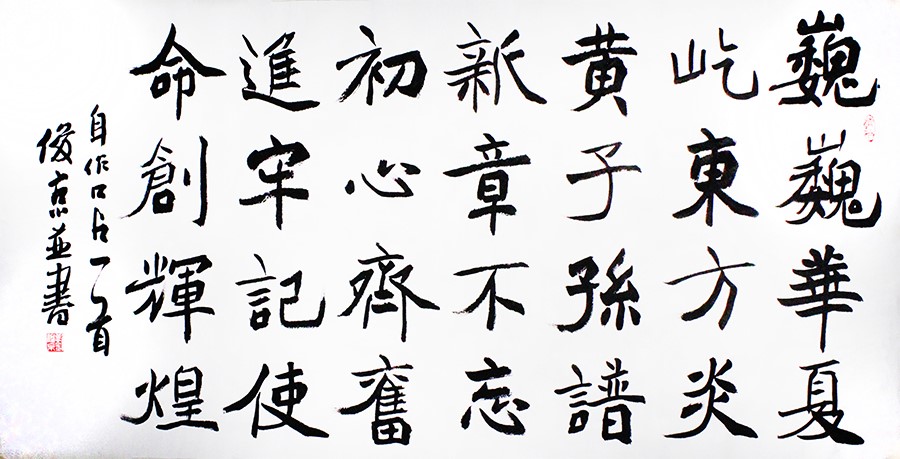 巍巍華夏
屹東方炎
黄子孫譜
新章不忘
初心齊奮
進牢記使
命創輝煌
自作口占一首
俊京並書